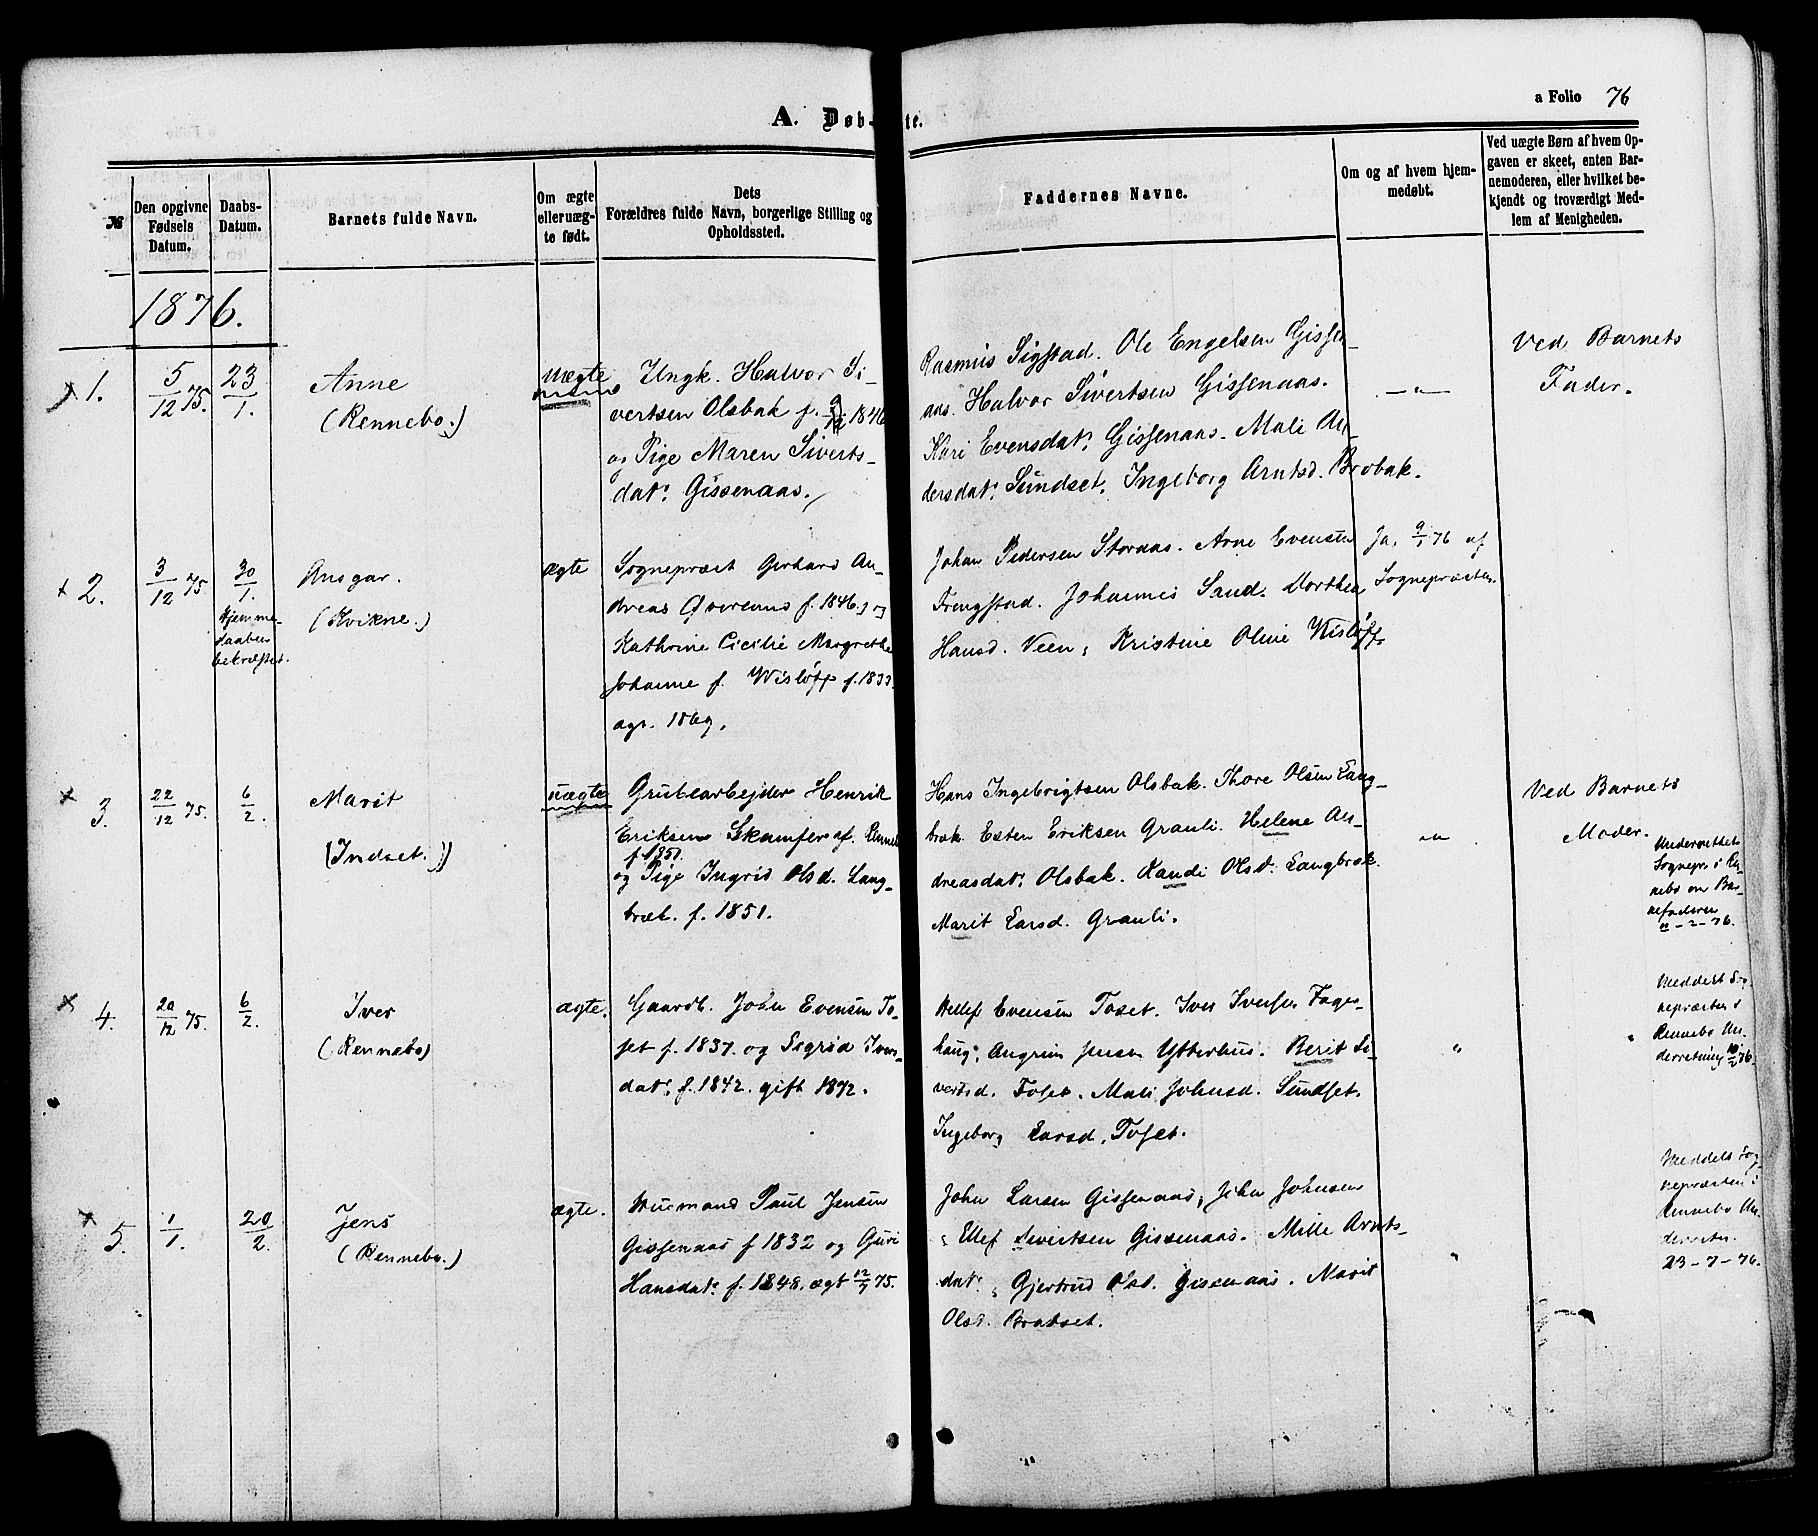 A. Døb-te.
a Folio 76
№
Den opgivne Fødsels Datum.
Daabs-Datum.
Barnets fulde Navn.
Om ægte eller uægte født.
Dets Forældres fulde Navn, borgerlige Stilling og Opholdssted.
Faddernes Navne.
Om og af hvem hjemmedøbt.
Ved uægte Børn af hvem Opgaven er skeet, enten Barnemoderen, eller hvilket bekjendt og troværdigt Medlem af Menigheden.
1876.
1.
5/12 75.
23/1.
Anne
(Rennebo.)
uægte
Ungk. Halvor Si-
vertsen Olsbak f. 1846
og Pige Maren Siverts-
dat. Gissenaas.
Rasmus Sigstad. Ole Engelsen Gisse-
aas. Halvor Sivertsen Gissenaas.
Kari Evensdat. Gissenaas. Mali An-
dersdat. Sundset. Ingeborg Arntsd. Brobak.
—"—
Ved Barnets
Fader.
x 2.
3/12 75
30/1.
Hjemme-
daaben
bekræftet.
Ansgar.
(Kvikne.)
ægte
Sognepræst Gerhard An-
dreas f. 1846. og
Kathrine Cicilie Margrethe
Johanne f. Wisløff f. 1833.
agt. 1869.
Johan Pedersen Storaas. Arne Evensen
Frengstad. Johannes Sand. Dorthea
Hansd. Veen, Kristine Oline Wisløff.
Ja, 9/1 76 af
Sognepræsten.
x 3.
22/12 75.
6/2.
Marit
(Indset.)
uægte
Grubearbejder Henrik
Eriksen Skamfer af
f. 1851.
og Pige Ingrid Olsd. Lang-
bræk. f. 1851.
Hans Ingebrigtsen Olsbak. Thore Olsen Lang-
bræk. Esten Eriksen Grauli. Helene An-
dreasdat. Olsbak. Randi Olsd. Langbræk.
Marit Larsd. Grauli.
"
Ved Barnets
Moder.
Underrettet
Sognepr. i Re-
nebo om Bar-
nefaderen
11-2-76.
x 4.
20/12 75.
6/2.
Iver
(Rennebo)
ægte.
Gaardb. John Evensen To-
set f. 1837. og Sigrid Ivers-
dat. f. 1842. gift 1872.
Evensen Toset. Iver Iversen Fages-
haug, Angrim Jensen Ytterhus. Berit Si-
vertsd. Toset. Mali Johnsd. Sundset.
Ingeborg Larsd. Toset.
"
"
Meddelt Sog-
nepræsten i
Rennebo Un-
derretning 10/7 76.
x 5.
1/1.
20/2.
Jens
(Rennebo.)
ægte.
Husmand Paul Jensen
Gissenaas f 1832 og Guri
Hansdat. f. 1848. ægt 12/7 75.
John Larsen Gissenaas, John Johnsen
" Ellef Sivertsen Gissenaas. Mille Arnts-
dat. " Gjertrud Olsd. Gissenaas. Marit
Olsd. Bratset.
"
Meddelt Sog-
nepræsten i
Rennebo Un-
derretn.
23-7-76.